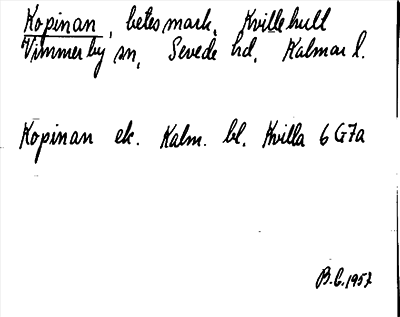 Kopinan, betesmark, Kvillehult
Vimmerby sn, Sevede hd, Kalmar l.
Kopinan ek. Kalm. bl. Kvilla 6 G7a
B.G. 1957